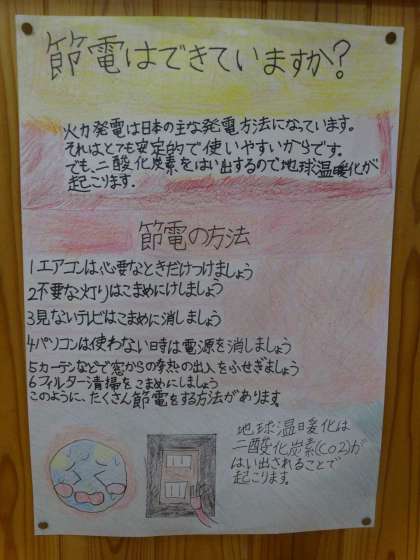 節電はできていますか?
火力発電は日本の主な発電方法になっています。
それはとても安定的で使いやすいからです。
でも、二酸化炭素をはい出するので地球温暖化が
起こります.
節電の方法
1エアコンは必要なときだけつけましょう
2不要な灯りはこまめにけしましょう
3見ないテレビはこまめに消しましょう
4パソコンは使わない日時は電源を消しましょう
5カーテンなどで窓からの熱の出入をふせぎましょう
6フィルター清掃をこまめにしましょう
このように、たくさん節電をする方法があります。
地球温暖化は
二酸化炭素(CO2)が
はい出されることで
起こります。